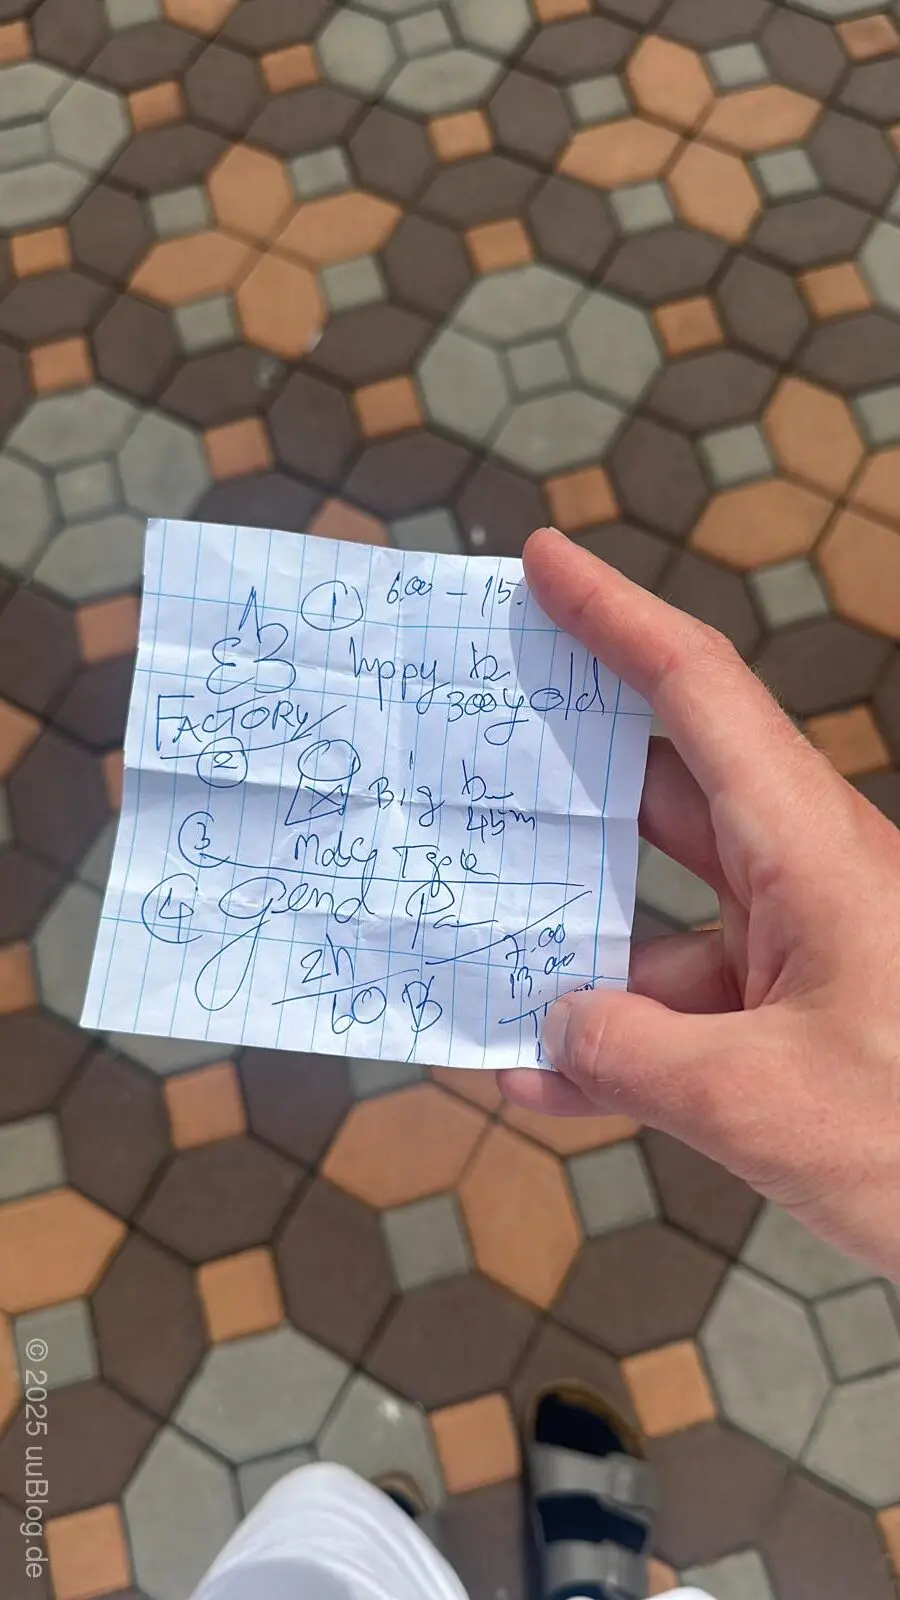 1 6.00 – 15.
hppy b
300 y old
FACTORY
2 Big b
45m
3
4 Gend Pa
7.00
13.00
2h
60 B
© 2025 uuBlog.de